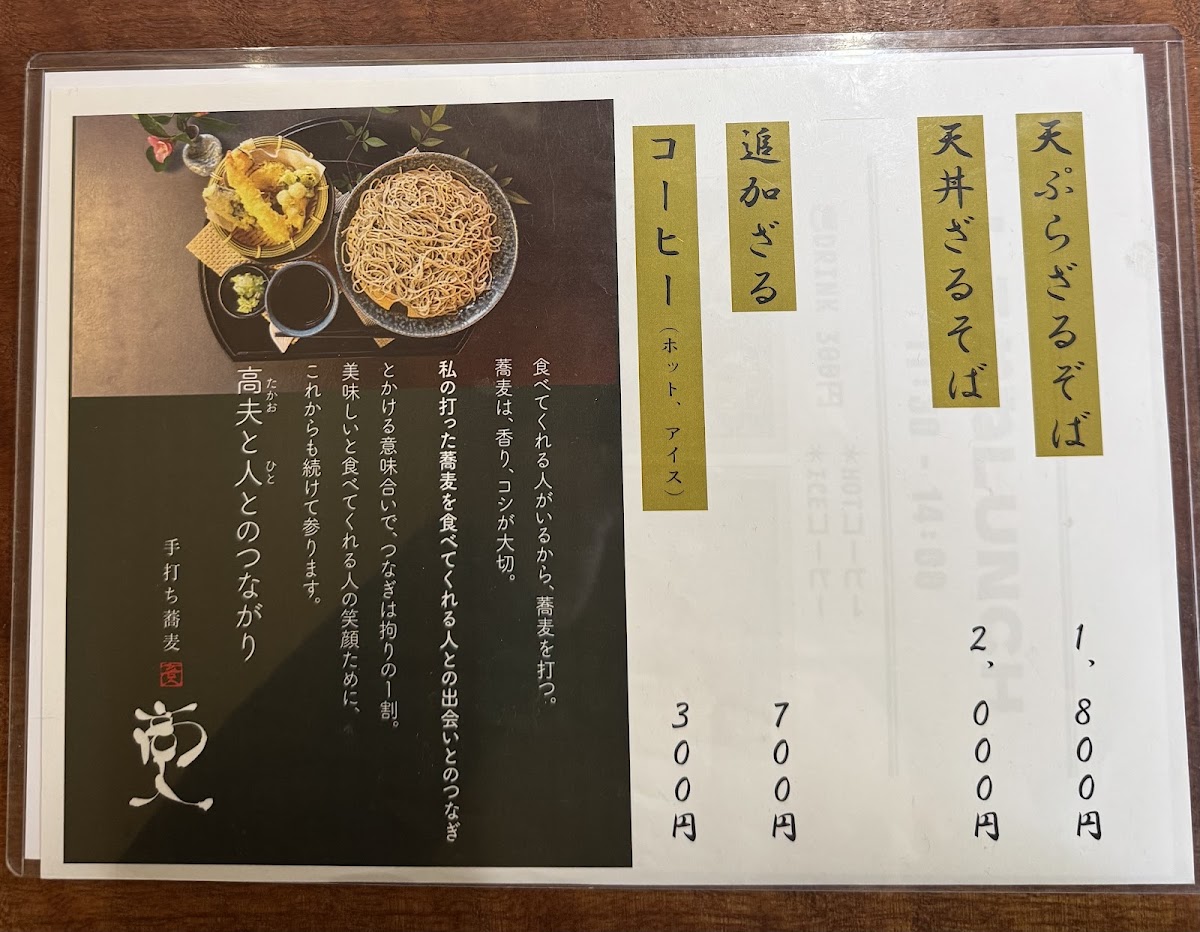 天ぷらざるそば
1,800円
天丼ざるそば
2,000円
追加ざる
700円
コーヒー(ホット、アイス)
300円
食べてくれる人がいるから、蕎麦を打つ。
蕎麦は、香り、コシが大切。
私の打った蕎麦を食べてくれる人との出会いとのつなぎ
とかける意味合いで、つなぎは拘りの一割。
美味しいと食べてくれる人の笑顔ために、
これからも続けて参ります。
高夫と人とのつながり
たかお
ひと
手打ち蕎麦